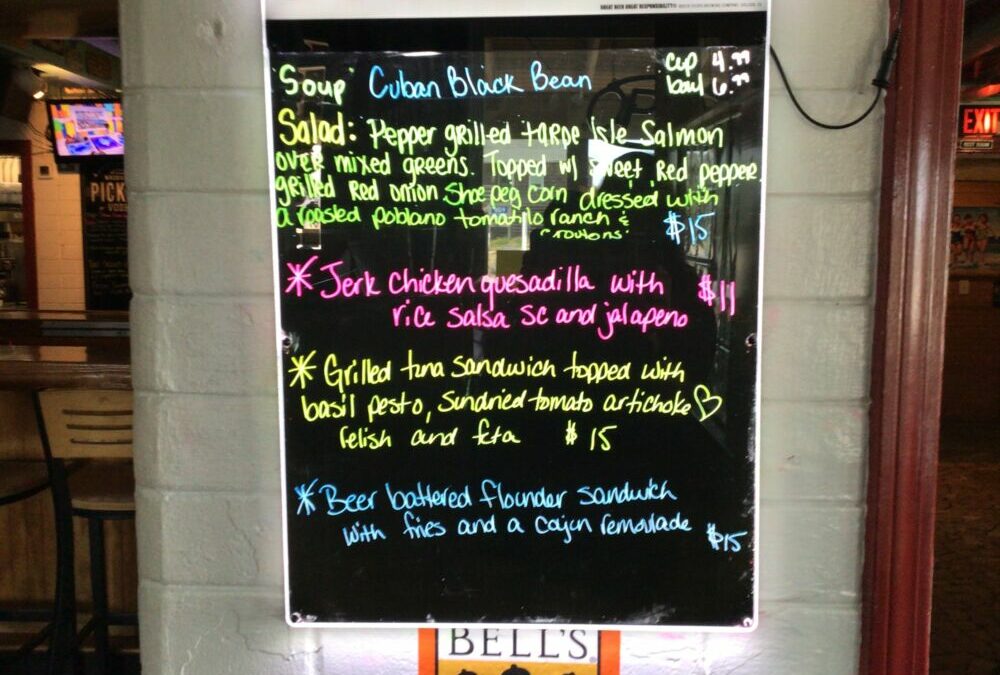 GREAT BEER GREAT RESPONSIBILITY
Soup Cuban Black Bean cup 4.99
bowl 6.99
Salad: Pepper grilled tarpe Isle Salmon
over mixed greens. Topped w/ Sweet Red pepper
grilled Red onion Shoe peg corn dressed with
a roasted poblano tomatillo ranch &
croutons. $15
* Jerk chicken quesadilla with $11
rice salsa sc and jalapeno
* Grilled tuna sandwich topped with
basil pesto, sundried tomato artichoke
relish and feta $15
* Beer battered flounder sandwich
with fries and a cajun remoulade $15
BELL'S
PICK
EXIT